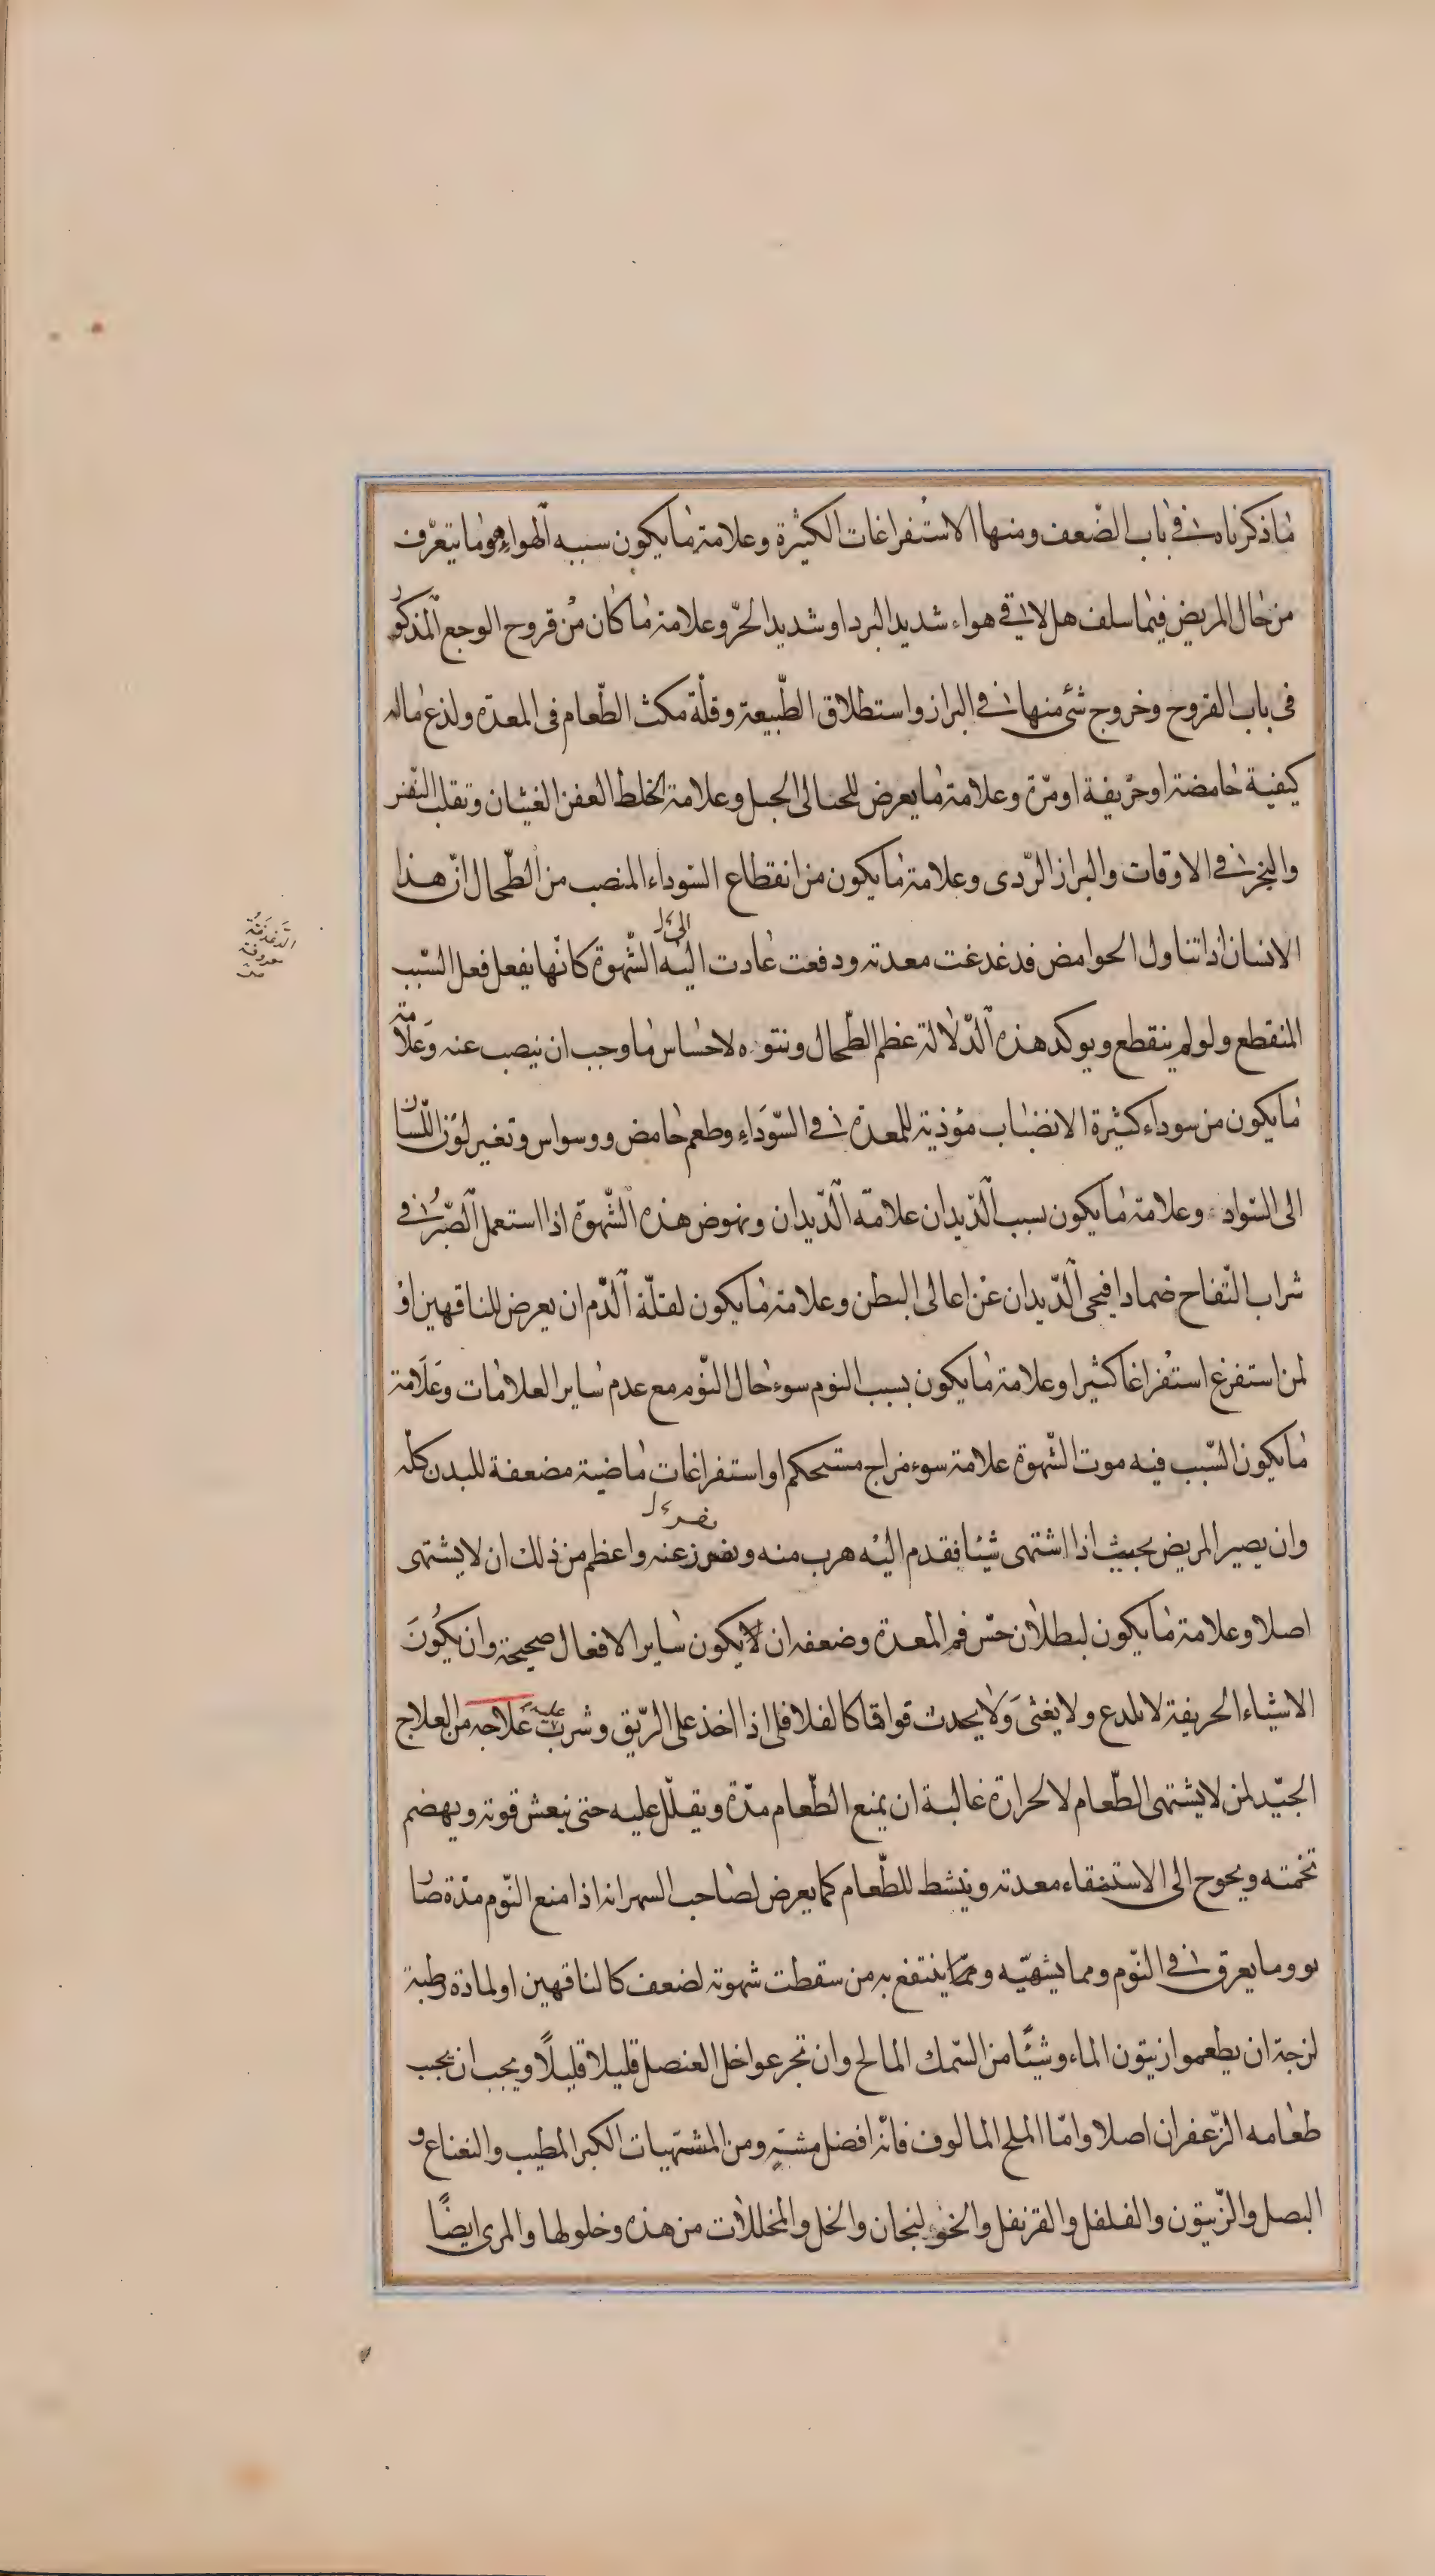 ما ذكرناه فى باب الضّعف ومنها الاستفراغات الكثيرة وعلامة ما يكون سببه الهواء هو ما يتعرّف
من حال المريض فيما سلف هل لاقى هواء شديد البرد او شديد الحرّ وعلامة ما كان من قروح الوجع المذكور
فى باب القروح وخروج شئ منها فى البراز واستطلاق الطّبيعة وقلّة مكث الطّعام فى المعدة ولذع ماله
كيفية حامضة او حرّيفة او مرّة وعلامة ما يعرض للحبالى الحبل وعلامة الخلط العفن الغثيان وتقلب النّفس
والبخر فى الاوقات والبراز الرّدى وعلامة ما يكون من انقطاع السّوداء المنصب من الطّحال انّ هذا
الانسان اذا تناول الحوامض فدغدغت معدته ودفعت عادت اليه الشّهوة كانّها يفعل فعل السّبب
المنقطع ولو لم ينقطع ويوكد هذه الدّلالة عظم الطّحال ونتوه لاحساس ما وجب ان ينصب عنه وعلامة
ما يكون من سوداء كثيرة الانضباب مؤذية للمعدة فى السّوداء وطعم حامض ووسواس وتغير لون اللّسان
الى السّواد وعلامة ما يكون بسبب الدّيدان علامة الدّيدان ونهوض هذه الشّهوة اذا استعمل الصّبر فى
شراب التّفاح ضمادا فيحى الدّيدان عن اعالى البطن وعلامة ما يكون لقلّة الدّم ان يعرض للناقهين او
لمن استفرغ استفراغا كثيرا وعلامة ما يكون بسبب النوم سوء حال النّوم مع عدم ساير العلامات وعلامة
ما يكون السّبب فيه موت الشّهوة علامة سوء مزاج مستحكم او استفراغات ماضية مضعفة للبدن كلّه
وان يصير المريض بحيث اذا اشتهى شيئا فقدم اليه هرب منه ونفر عنه واعظم من ذلك ان لا يشتهى
اصلا وعلامة ما يكون لبطلان حسّ فم المعدة وضعفه ان لا يكون ساير الافعال صحيحة وان يكون
الاشياء الحريفة لا يلدع ولا يغثى ولا يحدث فواقا كالفلافلى اذا اخذ على الرّيق وشرب عليه علاجه من العلاج
الجيّد لمن لا يشتهى الطّعام لا لحرارة غالبة ان يمنع الطّعام مدّة ويقلّل عليه حتى ينعش قوته ويهضم
تخمته ويحوح الى الاستنقاء معدته وينشط للطّعام كما يعرض لصاحب السهر انه اذا منع النّوم مدّة صار
نووما يغرق فى النّوم ومما يشهيّه وممّا ينتفع به من سقطت شهوته لضعف كالناقهين او لمادة رطبة
لزجة ان يطعموا زيتون الماء وشيئًا من السّمك المالح وان تجرعوا خل العنصل قليلا قليلًا ويجب ان يجب
طعامه الزّعفران اصلا وامّا الملح المالوف فانّه افضل مشته ومن المشتهيات الكبر المطيب والنعناع و
البصل والزّيتون والفلفل والقرنفل والخولنجان والخل والمخللات من هذه وخلولها والمرى ايضًا
الدغدغة
معروفة